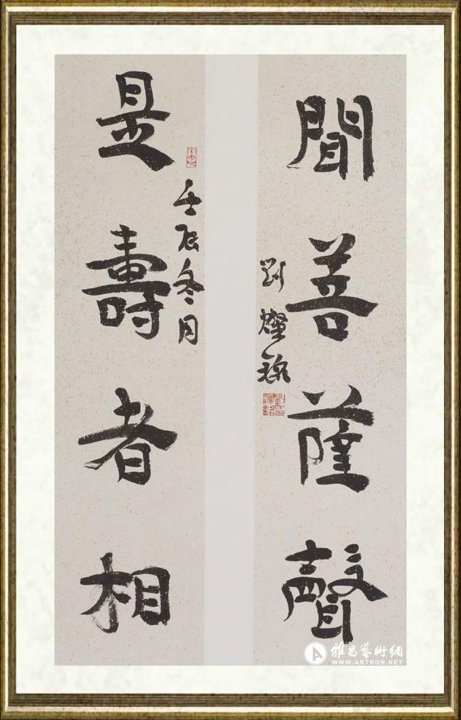 聞菩薩聲
劉燦銘
壬辰冬月
是壽者相
雅昌藝術網
WWW.ARTRON.NET